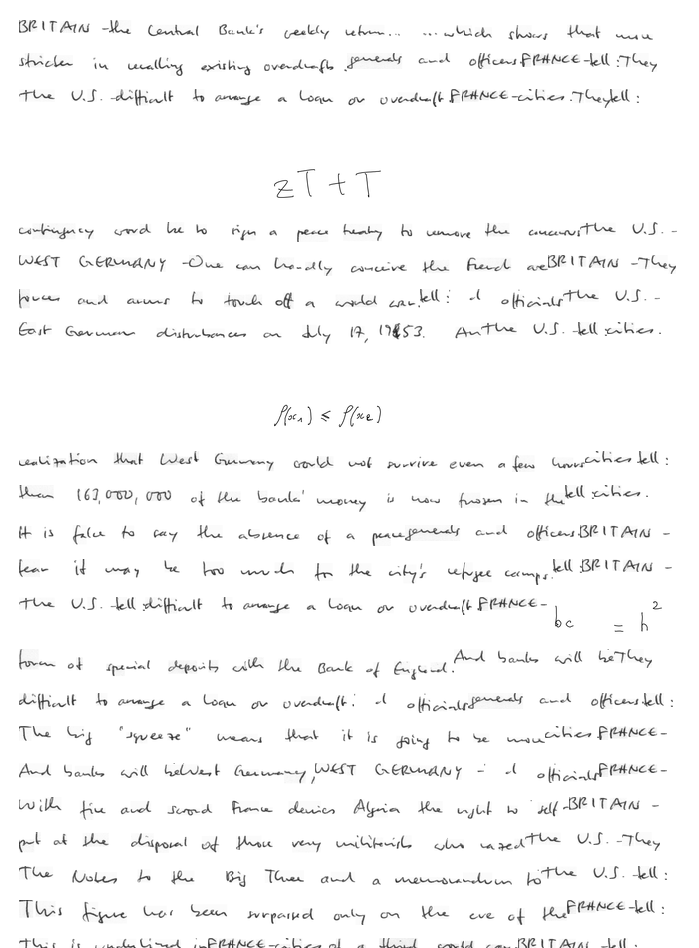 BRITAIN - the Central Bank's weekly return... ... which shows that more
stricter in recalling existing overdrafts. generals and officers FRANCE - tell : They
the U.S. - difficult to arrange a loan or overdraft FRANCE - cities. They tell :
zT + T
contingency would be to sign a peace treaty to remove the concerns the U.S. -
WEST GERMANY - One can hardly conceive the French are BRITAIN - They
forces and arms to touch off a world war. tell : d officials the U.S. -
East German disturbances on July 17, 1953. An the U.S. - tell : cities.
f(x₁) ≤ f(x₂)
realization that West Germany could not survive even a few hours cities tell :
than 163,000,000 of the banks' money is now frozen in the tell : cities.
It is false to say the absence of a peace generals and officers BRITAIN -
fear it may be too much for the city's refugee camps. tell : BRITAIN -
the U.S. - tell : difficult to arrange a loan or overdraft FRANCE -
bc = h²
form of special deposits with the Bank of England. And banks will be They
difficult to arrange a loan or overdraft : d officials generals and officers tell :
The big "squeeze" means that it is going to be more cities FRANCE -
And banks will be West Germany, WEST GERMANY - : d officials FRANCE -
With fire and sword France denies Algeria the right to self- BRITAIN -
put at the disposal of those very militarists who razed the U.S. - They
The Notes to the Big Three and a memorandum to the U.S. - tell :
This figure has been surpassed only on the eve of the FRANCE - tell :
This is underlined in FRANCE - cities of a third world war BRITAIN - tell :